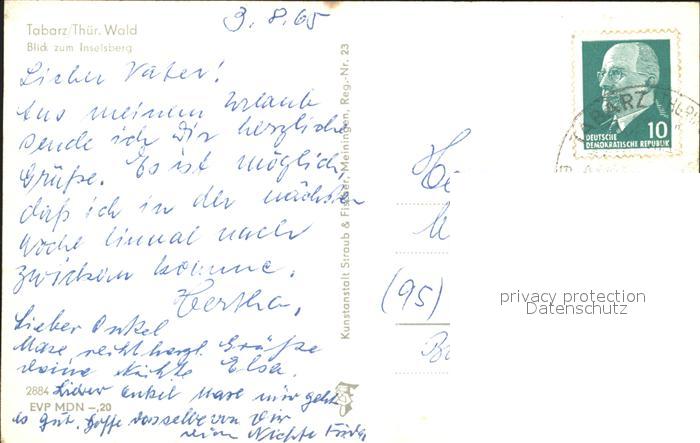 3.8.65
Tabarz/Thür. Wald
Blick zum Inselsberg
Lieber Vater!
Aus meinem Urlaub
sende ich Dir herzliche
Grüße. Es ist möglich,
daß ich in der nächsten
Woche einmal nach
Zwickau komme.
Hertha,
Lieber Onkel
Maxe, recht herzl. Grüße
Deine Nichte Elsa.
2884 Lieber Onkel Maxe mir geht
EVP MDN –,20
es gut. Hoffe dasselbe von Dir
Nichte
Kunstanstalt Straub & Fischer, Meiningen, Reg.-Nr. 23
TABARZ THÜR
DEUTSCHE 10
DEMOKRATISCHE REPUBLIK
(95)
privacy protection
Datenschutz